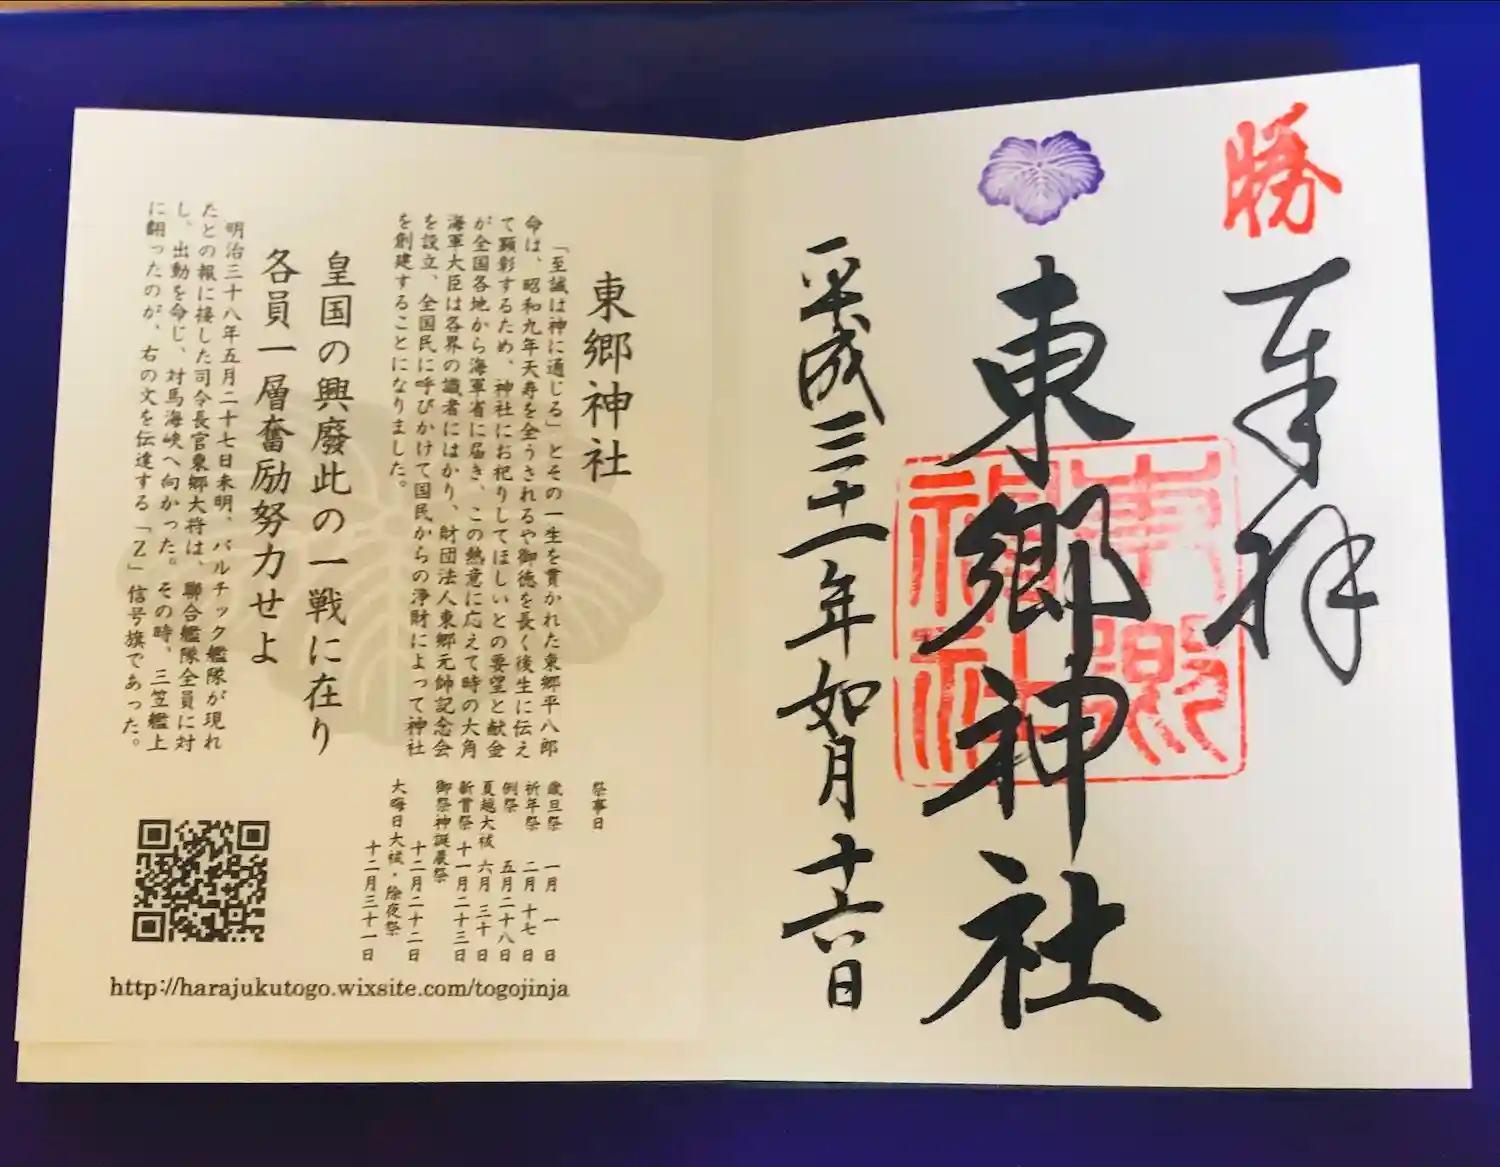 勝
奉拝
東郷神社
東郷神社
平成三十一年如月十六日
東郷神社
「至誠は神に通じる」とその一生を貫かれた東郷平八郎
命は、昭和九年天寿を全うされるや御徳を長く後生に伝え
て顕彰するため、神社にお祀りしてほしいとの要望と献金
が全国各地から海軍省に届き、この熱意に応えて時の大角
海軍大臣は各界の識者にはかり、財団法人東郷元帥記念会
を設立、全国民に呼びかけて国民からの浄財によって神社
を創建することになりました。
皇国の興廢此の一戦に在り
各員一層奮励努力せよ
明治三十八年五月二十七日未明、バルチック艦隊が現れ
たとの報に接した司令長官東郷大将は、聯合艦隊全員に対
し、出動を命じ、対馬海峡へ向かった。その時、三笠艦上
に翻ったのが、右の文を伝達する「Z」信号旗であった。
祭事日
歳旦祭 一月 一日
祈年祭 二月 十七日
例祭 五月二十八日
夏越大祓 六月 三十日
新嘗祭 十一月二十三日
御祭神誕辰祭 十二月二十二日
大晦日大祓・除夜祭 十二月三十一日
http://harajukutogo.wixsite.com/togojinja